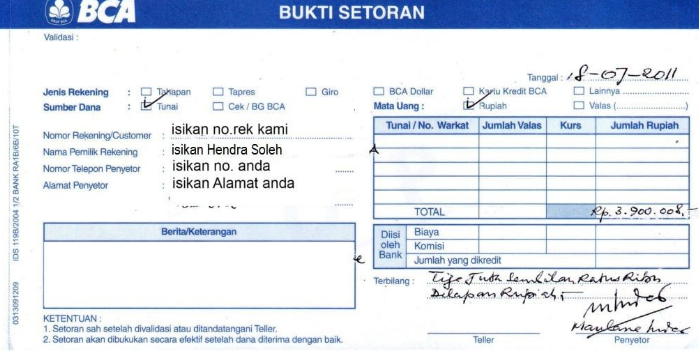 BCA BUKTI SETORAN
Validasi :
Tanggal : 18-07-2011
Jenis Rekening : Tahapan Tapres Giro BCA Dollar Kartu Kredit BCA Lainnya
Sumber Dana : Tunai Cek / BG BCA Mata Uang : Rupiah Valas (..............)
Nomor Rekening/Customer : isikan no.rek kami
Nama Pemilik Rekening : isikan Hendra Soleh
Nomor Telepon Penyetor : isikan no. anda
Alamat Penyetor : isikan Alamat anda
Tunai / No. Warkat Jumlah Valas Kurs Jumlah Rupiah
TOTAL Rp. 3.900.008,-
Berita/Keterangan
Diisi oleh Bank
Biaya
Komisi
Jumlah yang dikredit
Terbilang : Tiga Juta Sembilan Ratus Ribu
Delapan Rupiah
KETENTUAN :
1. Setoran sah setelah divalidasi atau ditandatangani Teller.
2. Setoran akan dibukukan secara efektif setelah dana diterima dengan baik.
Teller Penyetor
0313091209 IDS 119B/2004 1/2 BANK RA1B/6B/10T